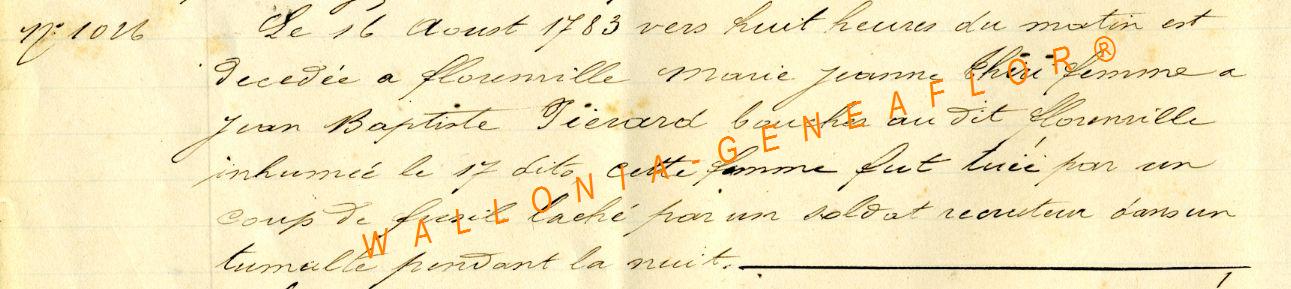 N° 1026 Le 16 Aoust 1783 vers huit heures du matin est
decedée a florenville Marie jeanne femme a
jean Baptiste Piérard boucher au dit florenville
inhumée le 17 dito cette femme fut tuée par un
coup de fusil laché par un soldat recruteur dans un
tumulte pendant la nuit.
WALLONIA-GENEAFLOR®